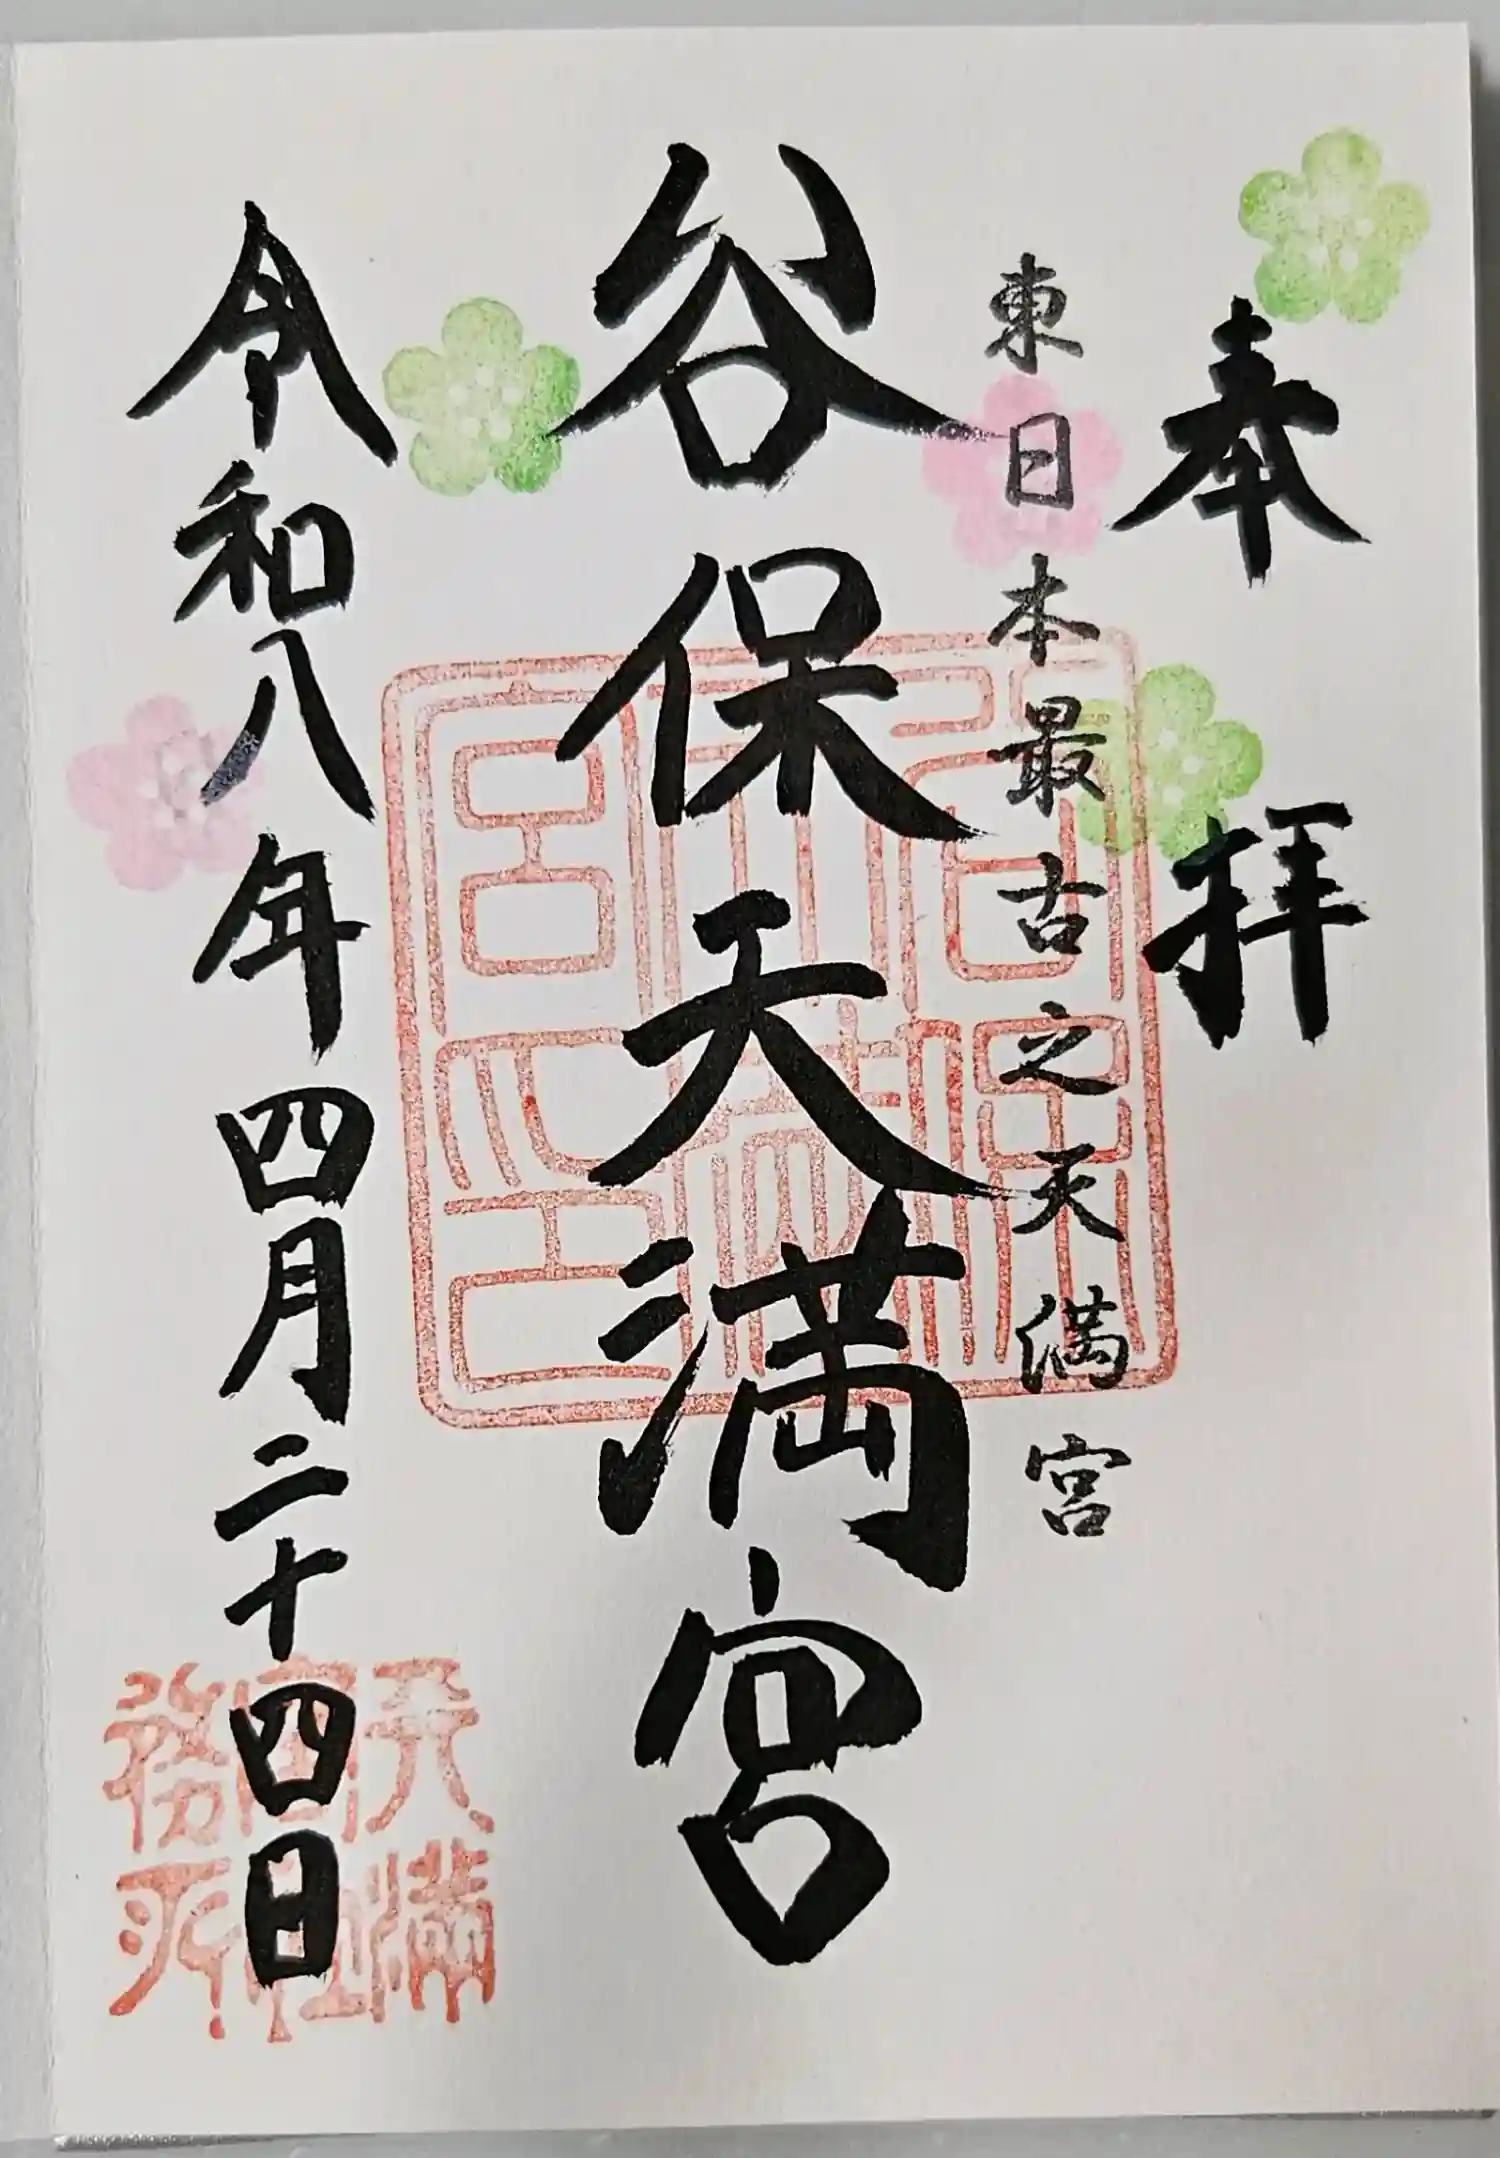 奉拝
東日本最古之天満宮
谷保天満宮
令和八年四月二十四日
谷保天満宮之印
天満宮社務所